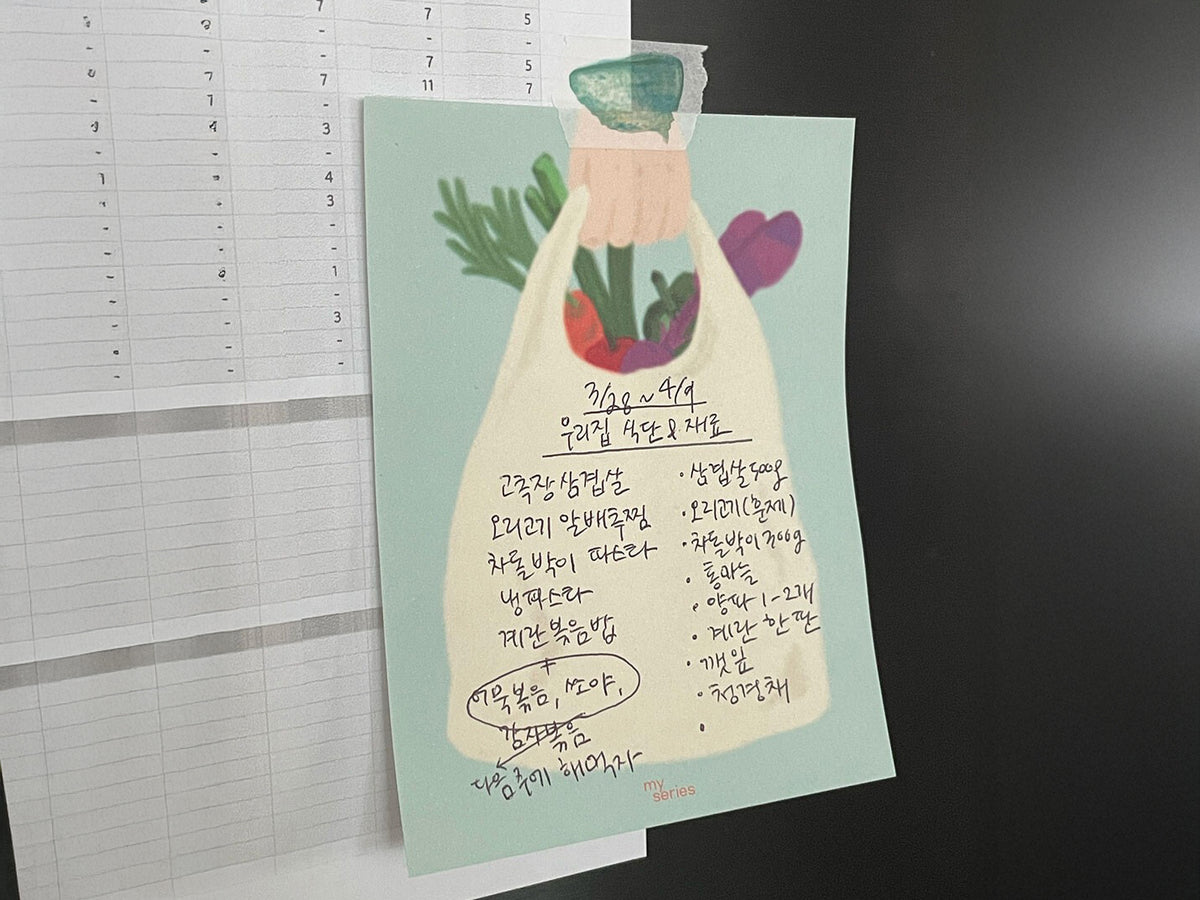 7 7 5
- - -
- 7 5
7 7 11 7
7 -
3
-
4
3
-
-
1
-
3
-
-
3/28 ~ 4/9
우리집 식단 & 재료
고추장 삼겹살
오리고기 알배추찜
차돌박이 파스타
냉파스타
계란볶음밥
+
어묵볶음, 쏘야,
감자볶음
다음주에 해먹자
· 삼겹살 500g
· 오리고기(훈제)
· 차돌박이 300g
· 통마늘
· 양파 1-2개
· 계란 한 판
· 깻잎
· 청경채
·
my
series